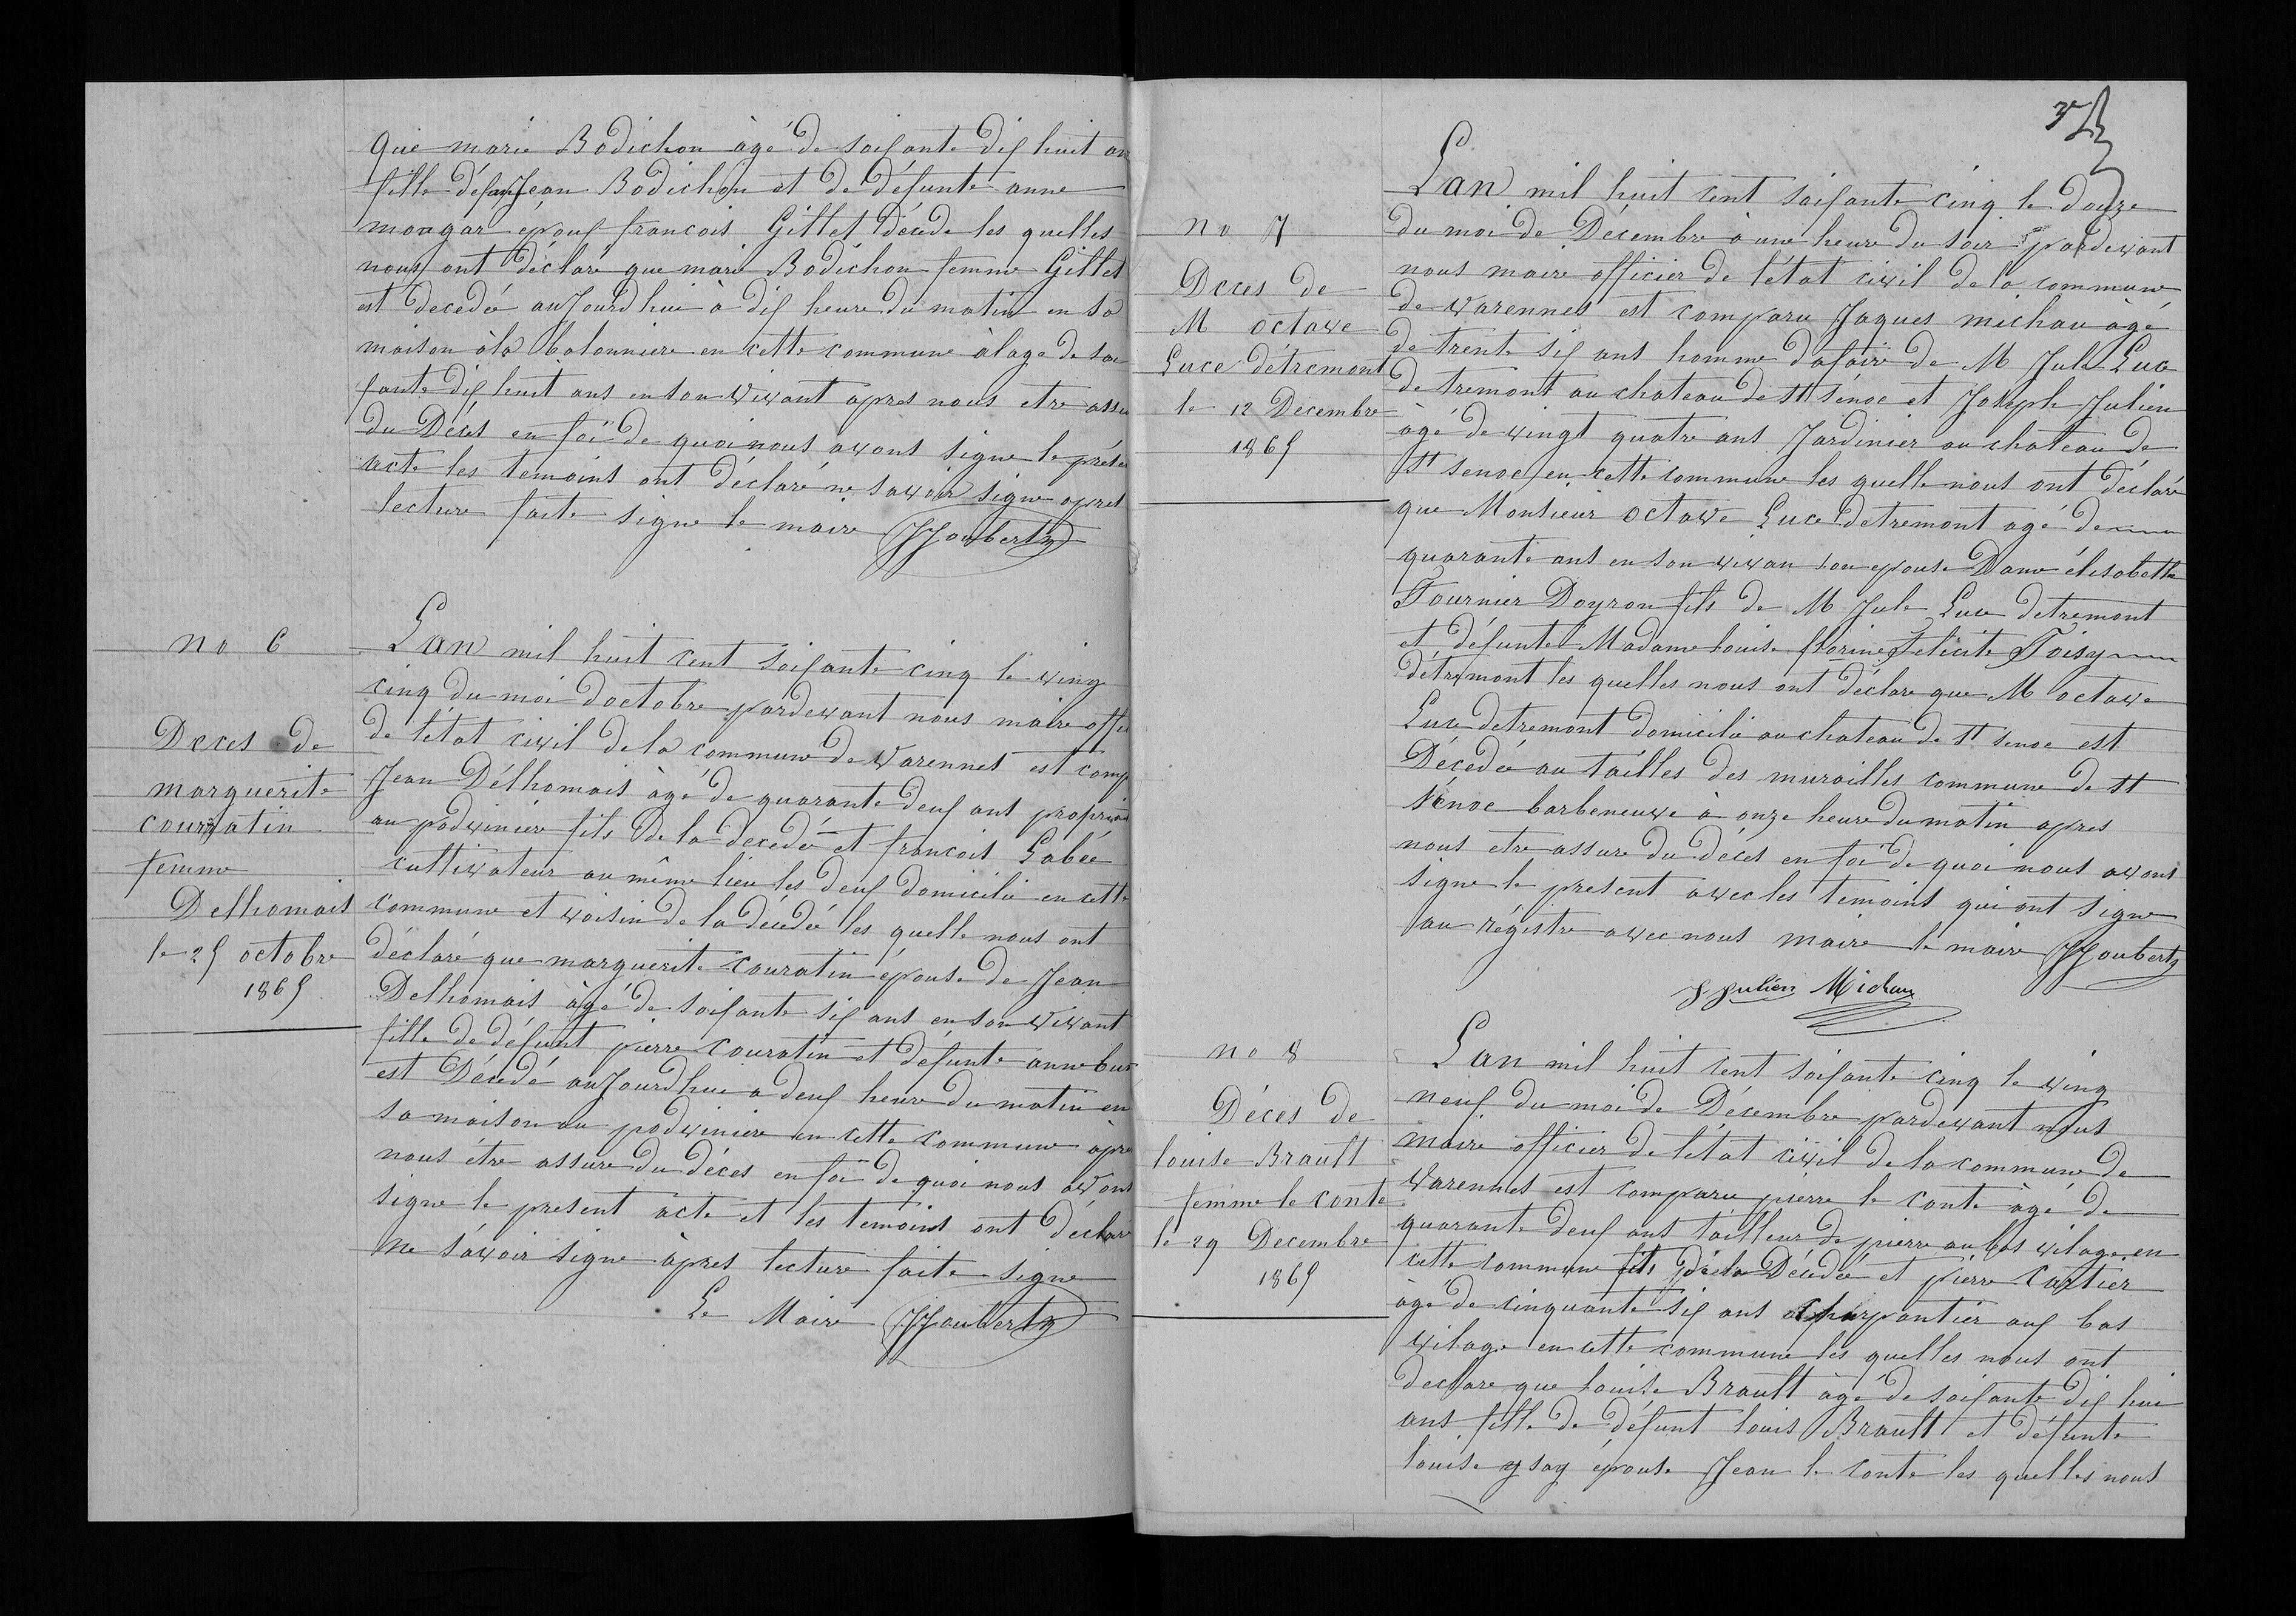 que marie Bodichon àgé de soisante dis huit an
fille défunt Jean Bodichon et de défunte anne
mongar épous francois Gillet décéde les quelles
nous ont déclaré que marie Bodichon femme Gillet
est decedée aujourdhui à dis heure du matin en sa
maison àla balonniere en cette commune àlage de soi
sante dis huit ans en son vivant apres nous etre assu
du Déces en foi de quoi nous avons signe le prése
acte les temoins ont déclaré ne savoir signe apres
lecture faite signe le maire JJoubert
no 6
Deces de
marguerite
couratin
femme
Delhomais
le 25 octobre
1865
Lan mil huit cent soisante cinq le ving
cinq du moi doctobre pardevant nous maire offi
de létat civil dela commune de Varennes est comp
Jean Délhomais àgé de quarante deus ans propriai
au podvinière fils de la decedé et francois Gabée
cultivateur au même lieu les deus domicilié en cette
commune et voisin de la décédée les quelle nous ont
déclaré que marguerite couratin épouse de Jean
Delhomais àgé de soisante sis ans en son vivant
fille de défunt pierre couratin et défunte anne bu
est Décédé aujourdhui a deus heure du matin en
sa maison au podvinière en cette commune àpre
nous étre assure du déces en foi de quoi nous avons
signe le present acte et les temoins ont déclare
ne sàvoir signe àpres lecture faite signe
Le Maire JJoubert
3e
no 7
Deces de
M octave
Luce détremont
le 12 Decembre
1865
Lan mil huit cent soisante cinq le douze
du moi de Décembre à une heure du soir pardevant
nous maire officier de létat civil de la commune
de Varennes est comparu Jaques michau àgé
de trente sis ans homme dafaire de M Jule Luce
de tremont au chateau de st sénoc et Joseph Julien
àgé de vingt quatre ans Jardinier au chateau de
st senoc en cette commune les quelle nous ont déclaré
que Monsieur octave Luce detremont agé de
quarante ans en son vivan son epouse Dame élisabette
Fournier Doyron fils de M Jule Luce detremont
et défunte Madame louise florine Felicite Toisy
détremont les quelles nous ont déclare que M octave
Luce detremont domicilié au chateau de st senoc est
Décédée au tailles des murailles commune de st
sénoc barbeneuve à onze heure du matin apres
nous etre assure du déces en foi de quoi nous avons
signe le present avec les temoins qui ont signe
au régistre avec nous maire le maire JJoubert
J Julien Michau
no 8
Déces de
louise Brault
femme le conte
le 29 Decembre
1865
Lan mil huit cent soisante cinq le ving
neuf du moi de Décembre pardevant nous
maire officier de létat civil de la commune de
Varennes est comparu pierre le conte àgé de
quarante deus ans tailleur de pierre au bas vilage en
cette commune fils dela Décédée et pierre Cartier
àgé de cinquante sis ans charpantier aus bas
vilage en cette commune les quelles nous ont
declare que louise Brault àgé de soisante dis hui
ans fille de défunt louis Brault et défunte
louise ysay épouse Jean le conte les quelles nous